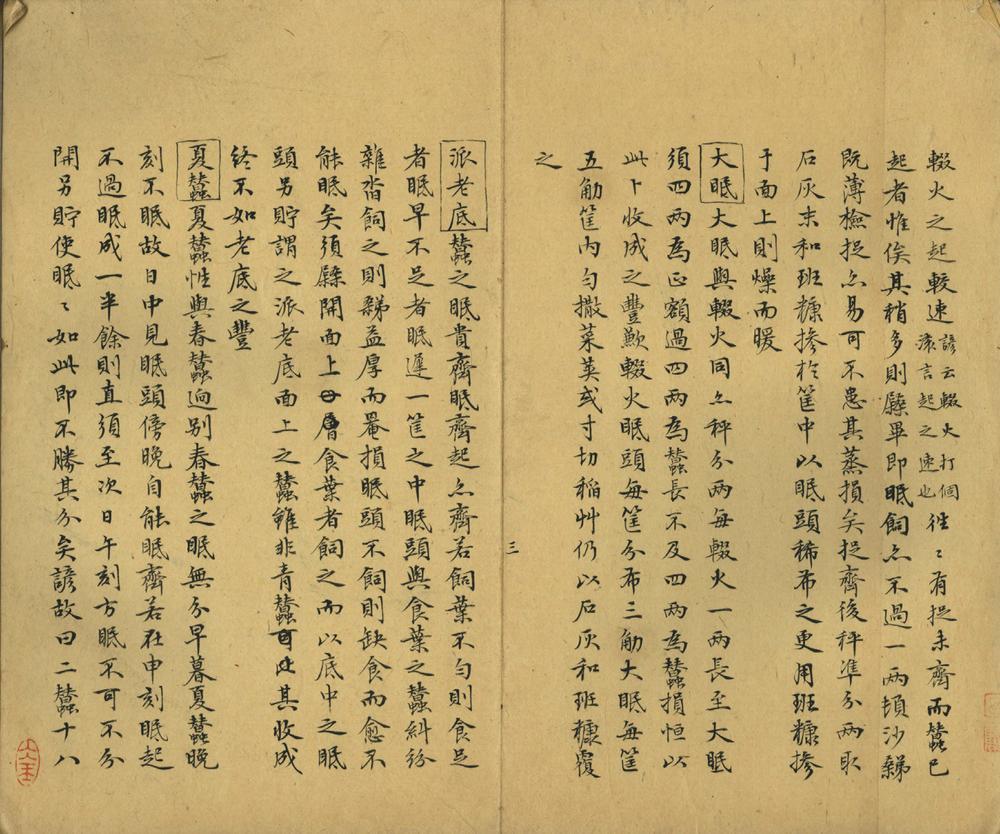 輟火之起較速諺云輟火打個
滚言起之速也徃〻有捉未齊而蠶已
起者惟俟其稍多則㡿畢即眠飼亦不過一兩頓沙䄺
既薄檢捉亦易可不患其蒸損矣捉齊後秤準分兩取
石灰末和班糠摻於筐中以眠頭稀布之更用班糠摻
于面上則燥而暖
大眠大眠與輟火同亦秤分兩每輟火一兩長至大眠
須四兩為正額過四兩為蠶長不及四兩為蠶損恒以
此卜收成之豐歉輟火眠頭每筐分布三觔大眠每筐
五觔筐內勻撒菜萁或寸切稻艸仍以石灰和班糠覆
之
三
派老底蠶之眠貴齊眠齊起亦齊若飼葉不勻則食足
者眠早不足者眠遲一筐之中眠頭與食葉之蠶糾紛
雜沓飼之則䄺益厚而罨損眠頭不飼則缺食而愈不
能眠矣須㡿開面上層食葉者飼之而以底中之眠
頭另貯謂之派老底面上之蠶雖非青蠶可比其收成
終不如老底之豐
夏蠶夏蠶性與春蠶迥別春蠶之眠無分早暮夏蠶晚
刻不眠故日中見眠頭傍晚自能眠齊若在申刻眠起
不過眠成一半餘則直須至次日午刻方眠不可不分
開另貯使眠〻如此即不勝其分矣諺故曰二蠶十八